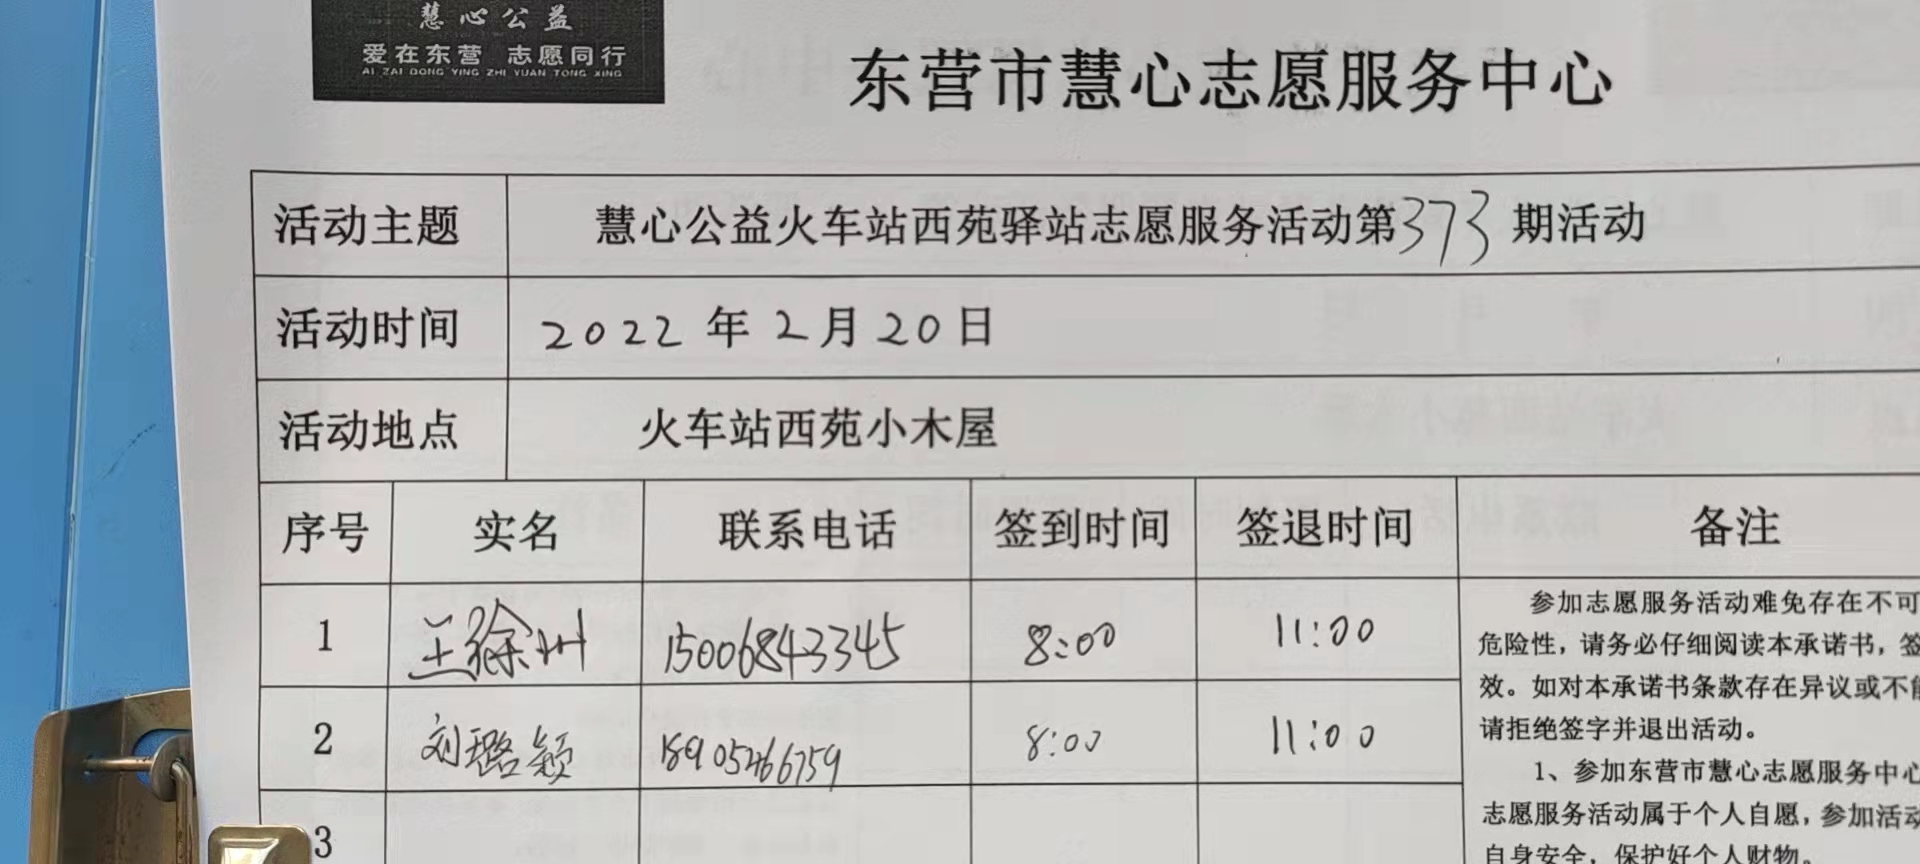 慧心公益
爱在东营 志愿同行
AI ZAI DONG YING ZHI YUAN TONG XING
东营市慧心志愿服务中心
活动主题 慧心公益火车站西苑驿站志愿服务活动第373期活动
活动时间 2022年2月20日
活动地点 火车站西苑小木屋
序号 实名 联系电话 签到时间 签退时间 备注
1 王徐州 15006843345 8:00 11:00
2 刘璐颖 18905466759 8:00 11:00
3
参加志愿服务活动难免存在不可
危险性，请务必仔细阅读本承诺书，签
效。如对本承诺书条款存在异议或不能
请拒绝签字并退出活动。
1、参加东营市慧心志愿服务中心
志愿服务活动属于个人自愿，参加活动
自身安全，保护好个人财物。